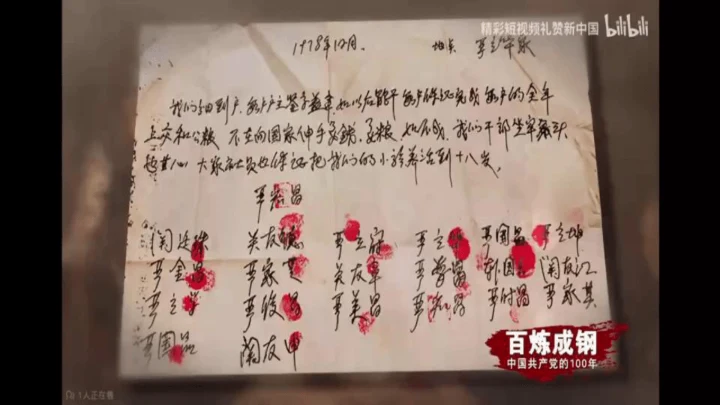 精彩短视频礼赞新中国 bilibili
1978年12月。 地点 严立华家
我们分田到户,每户户主签字盖章,如以后能干,每户保证完成每户的全年
上交和公粮,不在向国家伸手要钱要粮,如不成,我们干部坐牢杀头
也甘心,大家社员也保证把我们的小孩养活到十八岁。
严宏昌
关廷珠 关友德 严立符 严立华 严国昌 严立坤
严金昌 严家芝 关友章 严学昌 韩国云 关友江
严立学 严俊昌 严美昌 严付昌 严家其
严国品 关友申
百炼成钢
中国共产党的100年
1人正在看